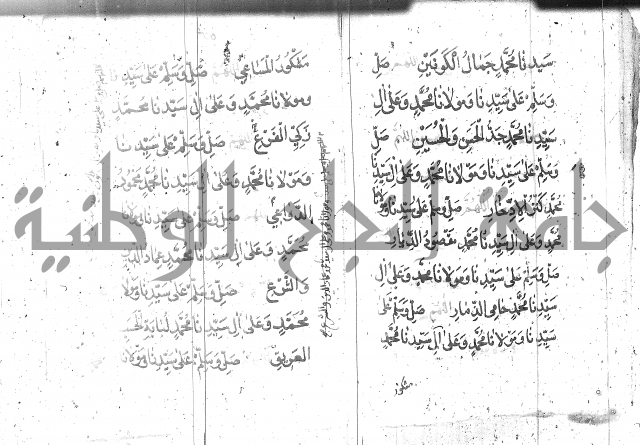 سيدنا محمد جمال الكونين اللهم صل
وسلم على سيدنا ومولانا محمد وعلى ال
سيدنا محمد جد الحسن والحسين اللهم صل
وسلم على سيدنا ومولانا محمد وعلى ال سيدنا
محمد صل وسلم على سيدنا
محمد وعلى ال سيدنا محمد مقصود الديار
صل وسلم على سيدنا ومولانا محمد وعلى ال
سيدنا محمد حامي الذمار اللهم صل وسلم على
سيدنا ومولانا محمد وعلى ال سيدنا محمد
مشكور
مشكور المساعي اللهم صل وسلم على سيدنا
ومولانا محمد وعلى ال سيدنا محمد
زكي الفرع اللهم صل وسلم على سيدنا
ومولانا محمد وعلى ال سيدنا محمد محمود
الدواعي صل وسلم على سيدنا ومولانا
محمد وعلى ال سيدنا محمد عماد الدين
والشرع صل وسلم على سيدنا ومولانا
محمد وعلى ال سيدنا محمد
العريق صل وسلم على سيدنا ومولانا
جامعة النجاح الوطنية